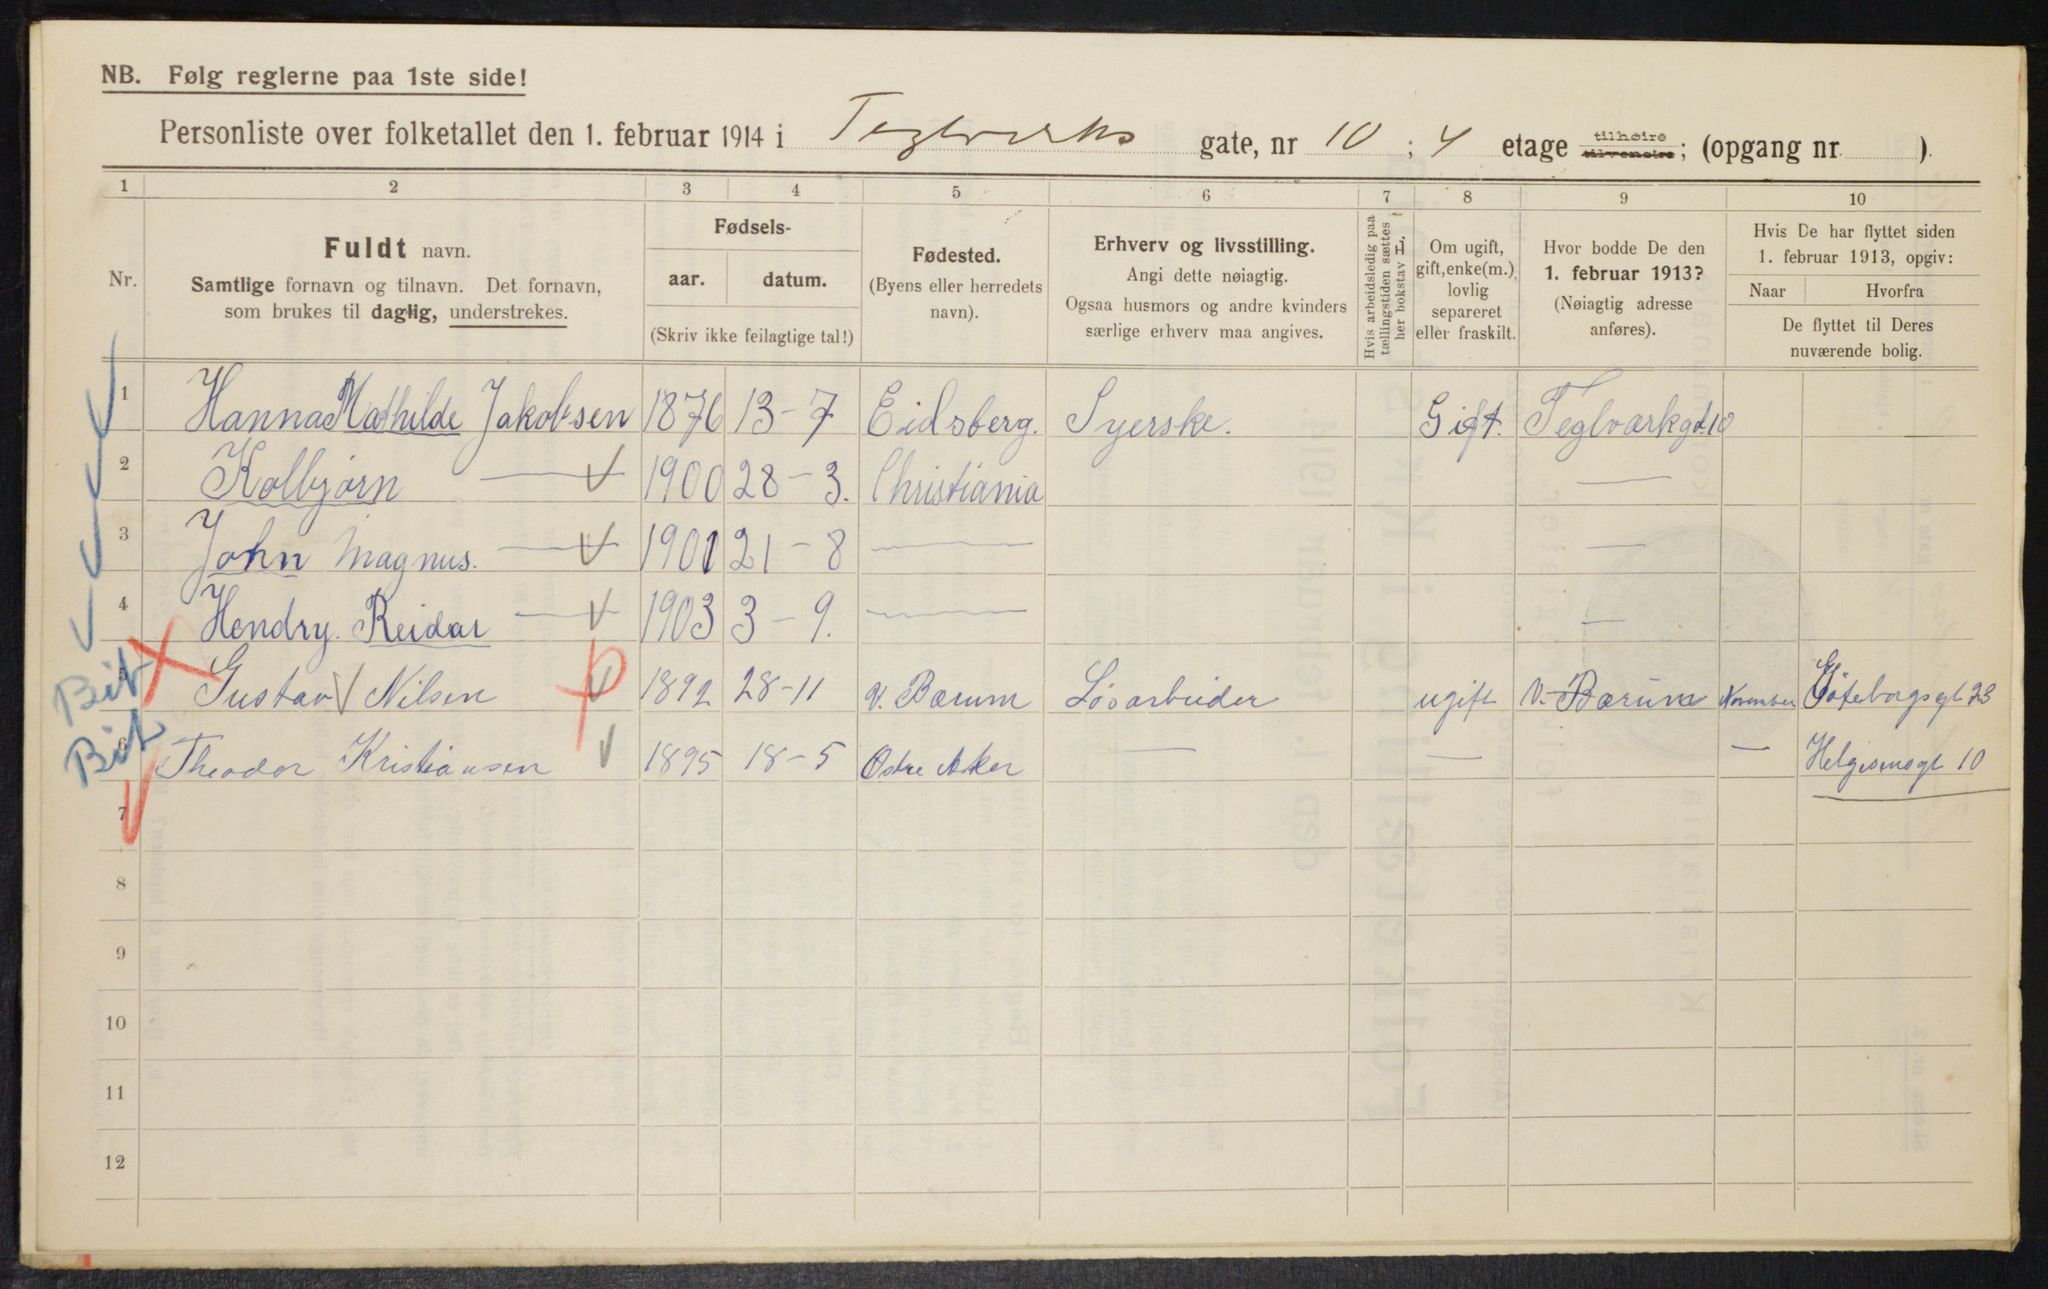 NB. Følg reglerne paa 1ste side!
Personliste over folketallet den 1. februar 1914 i Teglverks gate, nr 10 ; 4 etage tilhøire tilvenstre; (opgang nr )
1 2 3 4 5 6 7 8 9 10
Nr.
Fuldt navn.
Samtlige fornavn og tilnavn. Det fornavn, som brukes til daglig, understrekes.
Fødsels-
aar. datum.
(Skriv ikke feilagtige tal!)
Fødested.
(Byens eller herredets navn).
Erhverv og livsstilling.
Angi dette nøiagtig.
Ogsaa husmors og andre kvinders særlige erhverv maa angives.
Hvis arbeidsledig paa tællingstiden sættes her bokstav L.
Om ugift, gift, enke(m.), lovlig separeret eller fraskilt.
Hvor bodde De den 1. februar 1913?
(Nøiagtig adresse anføres).
Hvis De har flyttet siden 1. februar 1913, opgiv:
Naar Hvorfra
De flyttet til Deres nuværende bolig.
1 Hanna Mathilde Jakobsen 1876 13-7 Eidsberg. Syerske. Gift. Teglværkgt. 10
2 Kolbjørn — 1900 28-3. Christiania —
3 John Magnus. — 1901 21-8 — —
4 Hendry. Reidar — 1903 3-9. — —
5 Gustav Nilsen 1892 28-11 V. Bærum Løsarbeider ugift V. Bærum November Göteborgsgt 23
6 Theodor Kristiansen 1895 18-5 Østre Aker — — — Helgesensgt 10
7
8
9
10
11
12